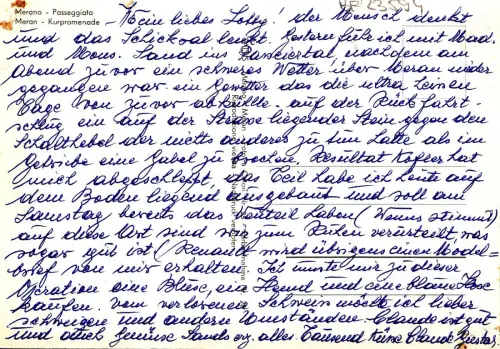 Merano - Passeggiata
Meran - Kurpromenade
Mein liebes Lotty. der Mensch denkt
und das Schicksal lenkt. Gestern fuhr ich mit Mad.
und Mons. Land ins nachdem am
Abend zuvor ein schweres Wetter über Meran nieder
gegangen war ein Gewitter das die ultra
Tage von zuvor abkühlte. auf der Rück fahrt
schlug ein auf der Strasse liegender Stein gegen den
Schalthebel der nichts anderes zu tun hatte als im
Getriebe eine Gabel zu brechen. Resultat hat
mich abgeschleppt, das Teil habe ich heute auf
dem Boden liegend ausgebaut und soll am
Samstag bereits das haben (Wenns stimmt)
auf diese Art sind wir zum Ruhen verurteilt, was
sogar gut ist (Renand wird übrigens einen Model=
brief von mir erhalten. Ich musste mir zu dieser
Operation eine Bluse, ein Hemd und eine blaue Hose
kaufen. vom verlorenen Schwein möcht ich lieber
schweigen und andern Umständen. Claude ist gut
und auch alles. Tausend Küsse Claude